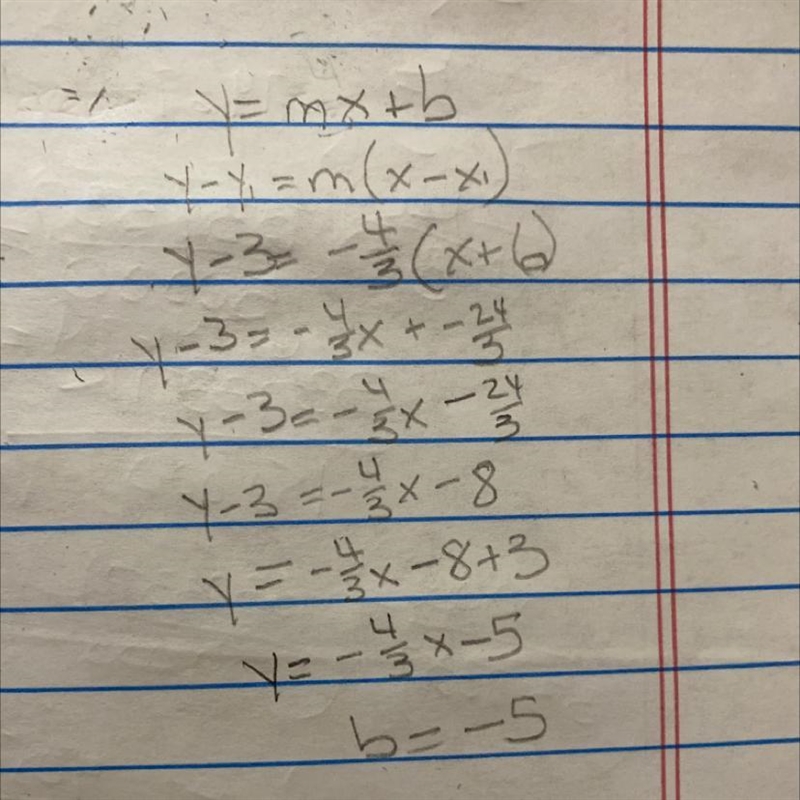 y = mx + b
y - y₁ = m(x - x₁)
y - 3 = -4/3(x + 6)
y - 3 = -4/3x + -24/3
y - 3 = -4/3x - 24/3
y - 3 = -4/3x - 8
y = -4/3x - 8 + 3
y = -4/3x - 5
b = -5